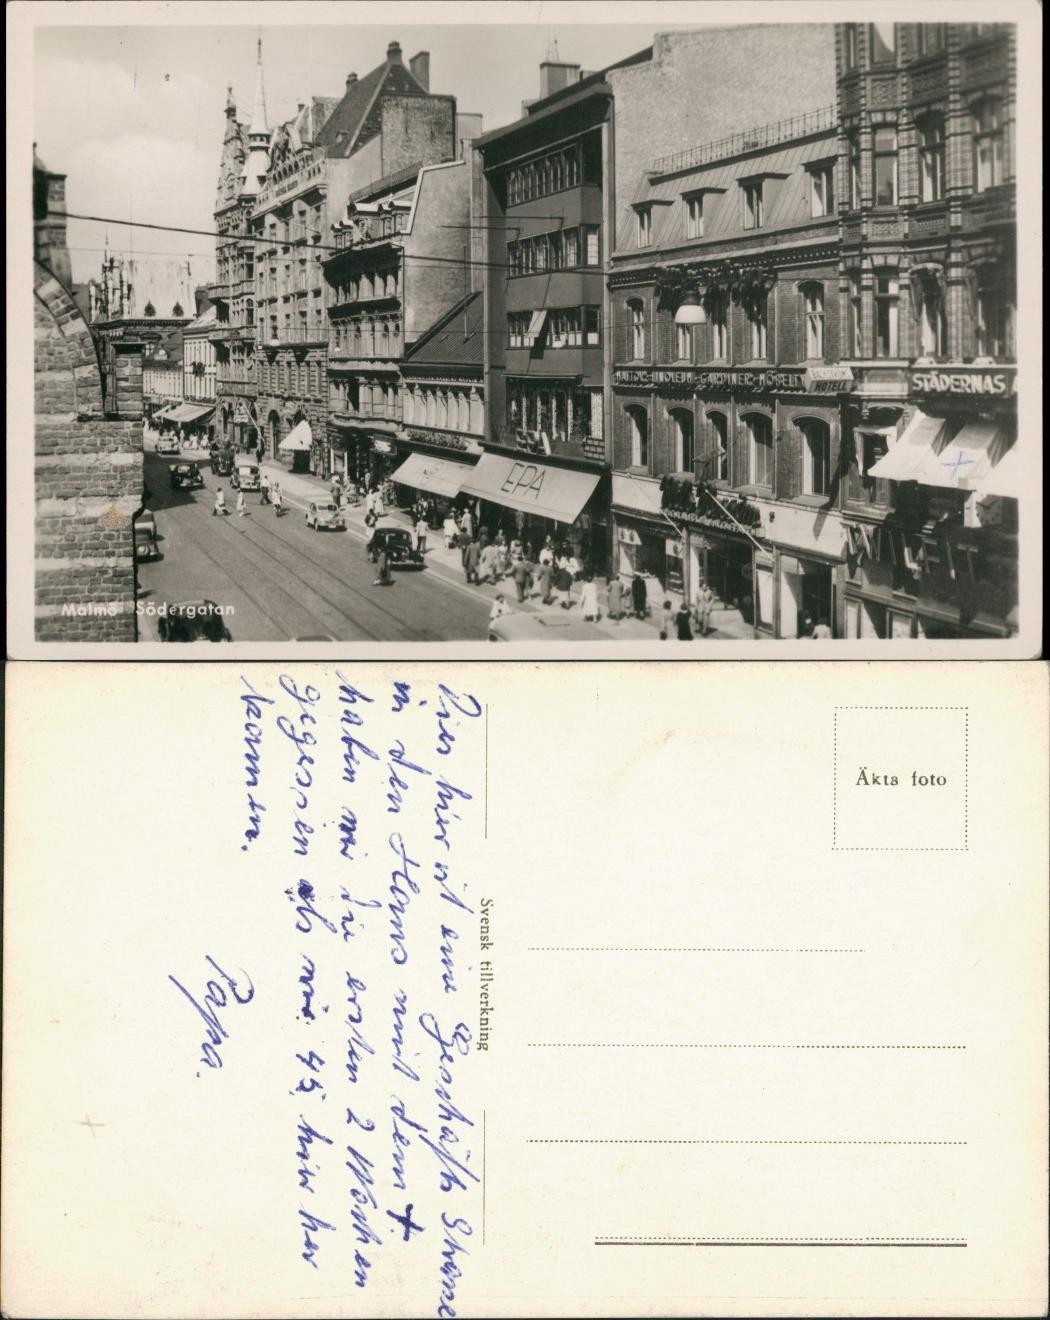 MATTOR-LINOLEUM-GARDINER-MÖBELTY
HOTELL
STÄDERNAS
EPA
Malmö Södergatan
Äkta foto
Svensk tillverkning
Dies hier ist eine Geschäfts Strasse
in den Haus mit dem +.
haben wir die ersten 2 Wochen
gegessen als wir 45 hier her
kamen.
Papa.